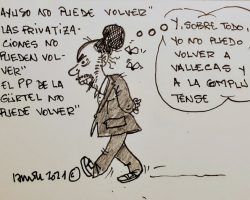 AYUSO NO PUEDE VOLVER"
"LAS PRIVATIZA-
CIONES NO
PUEDEN VOL-
VER"
EL PP DE LA
GÜRTEL NO
PUEDE VOLVER"
Y, SOBRE TODO,
YO NO PUEDO
VOLVER A
VALLECAS Y
A LA COMPLU
TENSE
2021